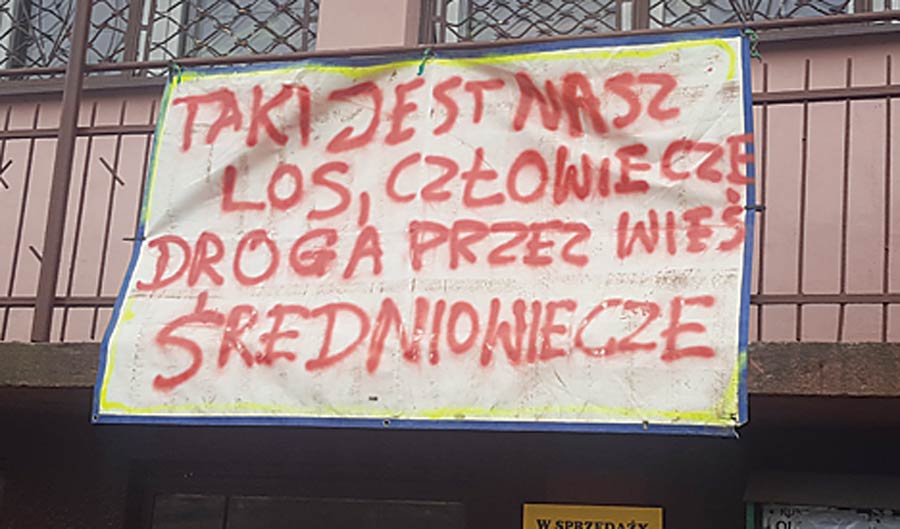 TAKI JEST NASZ
LOS, CZŁOWIECZE
DROGA PRZEZ WIEŚ
ŚREDNIOWIECZE
W SPRZEDAŻY